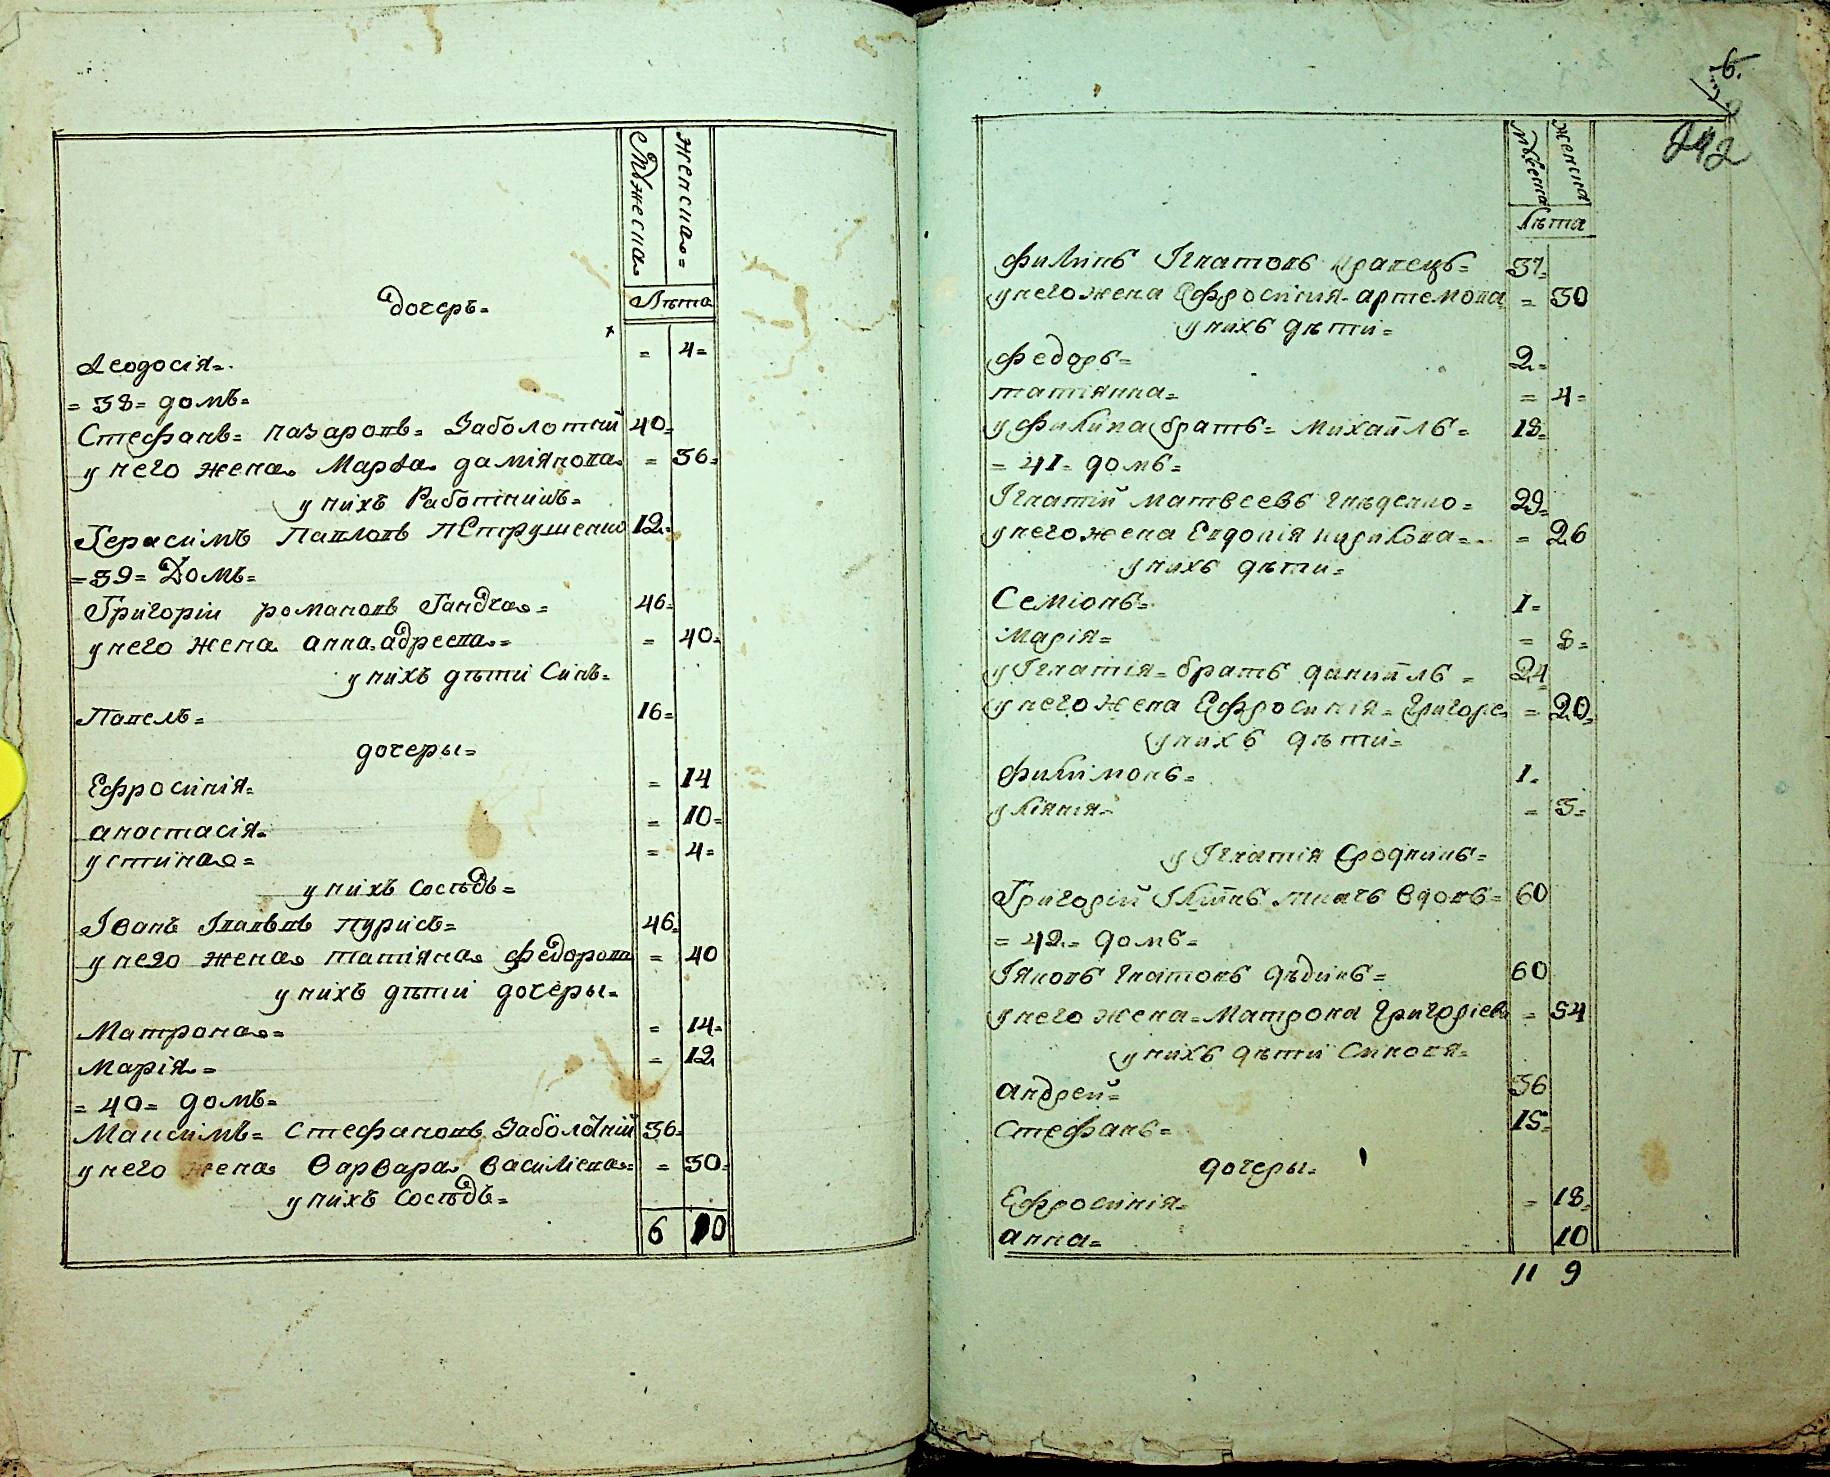 Мужеска
женска =
Лѣта
дочерь =
Ѳеодосія = = 4 =
= 38 = домъ =
Стефанъ = Назаровъ = Заболотній 40 =
у него жена Марѳа даміянова = 36 =
у нихъ Работникъ =
Герасимъ Павловъ Петрушенко 12 =
= 39 = Домъ =
Григорій романовъ Гандча = 46 =
у него жена анна адреева = = 40 =
у нихъ дѣти Синъ =
Павелъ = 16 =
дочеры =
Ефросинія = = 14
анастасія = = 10 =
устина = = 4 =
у нихъ сосѣдъ =
Іванъ Івановъ 46 =
у него жена татіяна федорова = 40
у нихъ дѣти дочеры =
Матрона = = 14 =
Марія = = 12
= 40 = домъ =
Максимъ = Стефановъ Заболотній 36 =
у него жена Варвара василіева = = 30 =
у нихъ сосѣдъ =
6 10
6.
242
Мужеска
женска
Лѣта
филипъ Ігнатовъ кравецъ = 37 =
у него жена Ефросинія артемова = 30
у нихъ дѣти =
федоръ = 2 =
татіянна = = 4 =
у филипа братъ = михаилъ = 18 =
= 41 = домъ =
Ігнатій матвеевъ гнѣденко = 29 =
у него жена Евдокія кирилова = = 26
у нихъ дѣти =
Семіонъ = 1 =
марія = = 8 =
у Ігнатія = братъ даниилъ = 24
у него жена Ефросинія = Григоре = 20 =
у нихъ дѣти =
филимонъ = 1 =
уліянія = = 3 =
у Ігнатія сродникъ =
Григорій ткачъ вдовъ = 60
= 42 = домъ =
Іяковъ Гнатовъ дѣдикъ = 60
у него жена = Матрона Григоріева = 54
у нихъ дѣти Синовя =
андрей = 36
Стефанъ = 15 =
дочеры =
Ефросинія = = 18 =
анна = 10
11 9